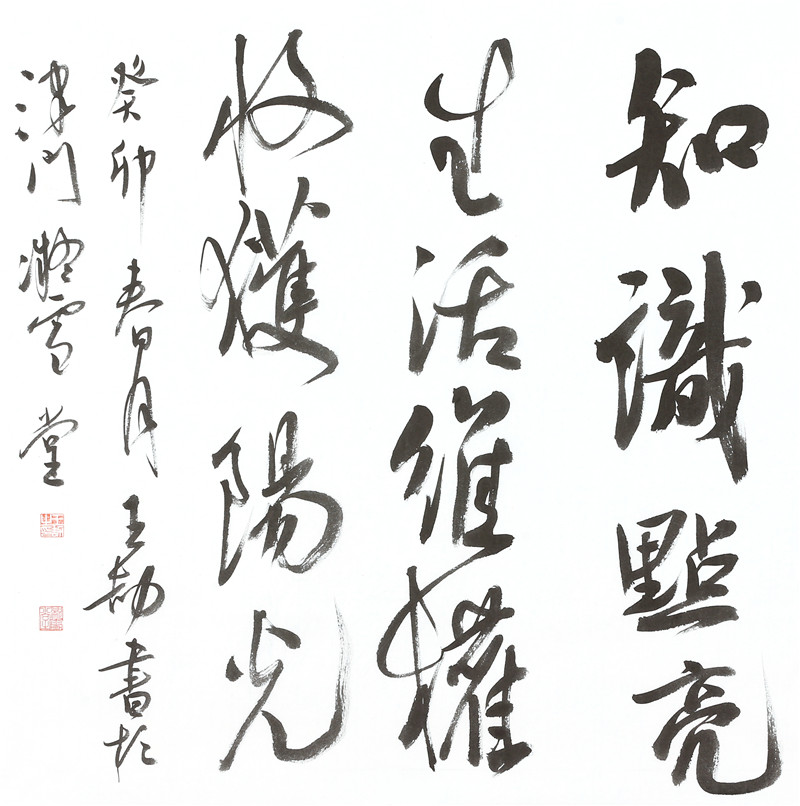 知識點亮
生活維權
收獲陽光
癸卯春月王劫書於
津門凝雪堂